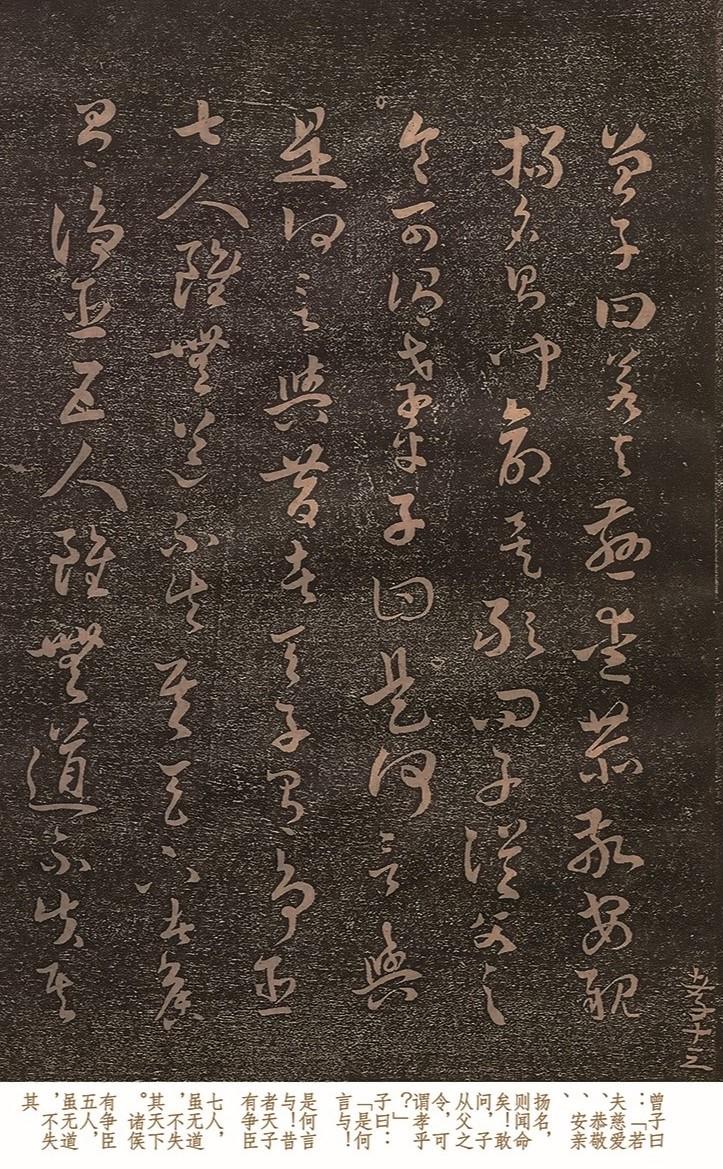 曾子曰若夫慈愛恭敬安親
揚名則聞命矣敢問子從父之
令可謂孝乎子曰是何言與
是何言與昔者天子有爭臣
七人雖無道不失其天下諸侯
有爭臣五人雖無道不失其
孝十三
曾子曰
：「若
夫慈爱
、恭敬
、安亲
、
扬名，
则闻命
矣！敢
问，子
从父之
令，可
谓孝乎
？」
子曰：
「是何
言与！
是何言
与！昔
者天子
有争臣
七人，
虽无道
，不失
其天下
。诸侯
有争臣
五人，
虽无道
，不失
其